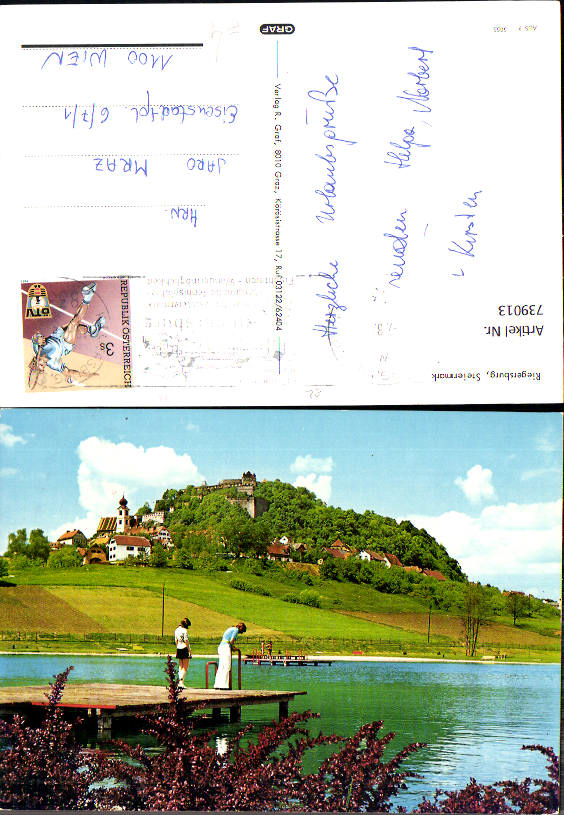 Riegersburg, Steiermark
Artikel Nr.
739013
Herzliche Urlaubsgrüße
senden Helga, Norbert
Kirsten
Verlag R. Graf, 8010 Graz, Körösistrasse 17, Ruf 03122/62404
GRAF
REPUBLIK ÖSTERREICH
3s
ÖTV
HRN.
JARO MRAZ
Eisenstadtpl. 6/7/1
1100 WIEN